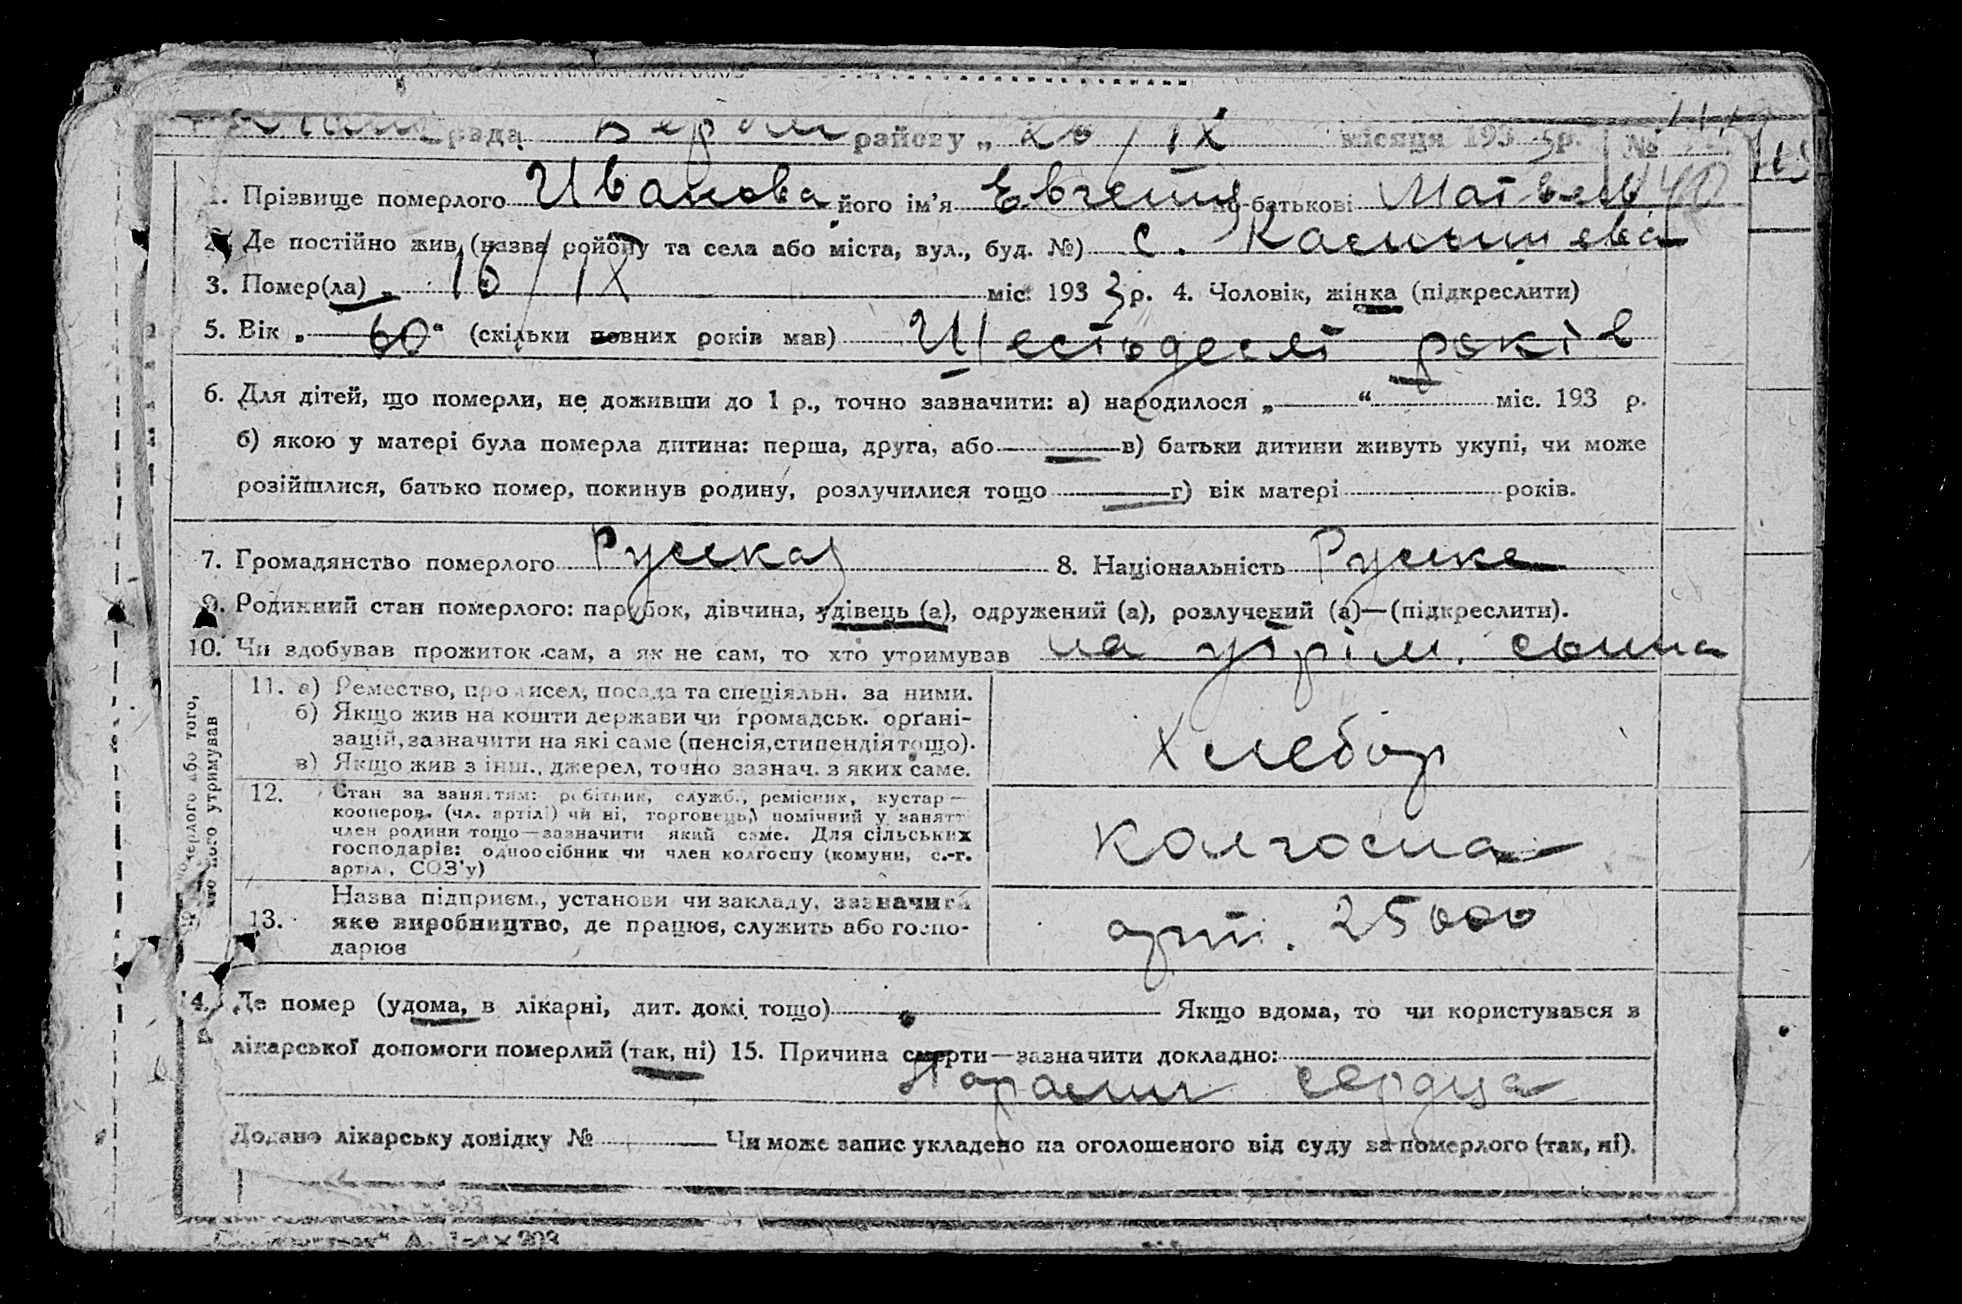 рада району „ 20/IX місяця 193 р. №
1. Прізвище померлого Иванова його ім’я Евгения по-батькові Матвеев
2. Де постійно жив (назва району та села або міста, вул., буд. №) с.
3. Помер(ла) „ 10/IX міс. 1933 р. 4. Чоловік, жінка (підкреслити)
5. Вік „ 60“ (скільки повних років мав) Шестьдесят років
6. Для дітей, що померли, не доживши до 1 р., точно зазначити: а) народилося „ “ міс. 193 р.
б) якою у матері була померла дитина: перша, друга, або в) батьки дитини живуть укупі, чи може
розійшлися, батько помер, покинув родину, розлучилися тощо г) вік матері років.
7. Громадянство померлого Русская 8. Національність Руська
9. Родинний стан померлого: парубок, дівчина, удівець (а), одружений (а), розлучений (а)—(підкреслити).
10. Чи здобував прожиток сам, а як не сам, то хто утримував на утрім. сына
11. а) Ремество, промисел, посада та спеціяльн. за ними.
б) Якщо жив на кошти держави чи громадськ. орґані-
зацій, зазначити на які саме (пенсія, стипендія тощо).
в) Якщо жив з інш., джерел, точно зазнач. з яких саме.
Хлебор
12. Стан за заняттям: робітник, служб., ремісник, кустар—
кооперов. (чл. артілі) чи ні, торговець, помічний у занятт
член родини тощо—зазначити який саме. Для сільських
господарів: одноосібник чи член колгоспу (комуни, с.-г.
артілі, СОЗ’у)
колгоспа
13. Назва підприєм., установи чи закладу, зазначити
яке виробництво, де працює, служить або госпо-
дарює
арт. 25000
14. Де помер (удома, в лікарні, дит. домі тощо) Якщо вдома, то чи користувався з
лікарської допомоги померлий (так, ні) 15. Причина смерти—зазначити докладно:
Паралич сердца
Додано лікарську довідку № Чи може запис укладено на оголошеного від суду за померлого (так, ні).